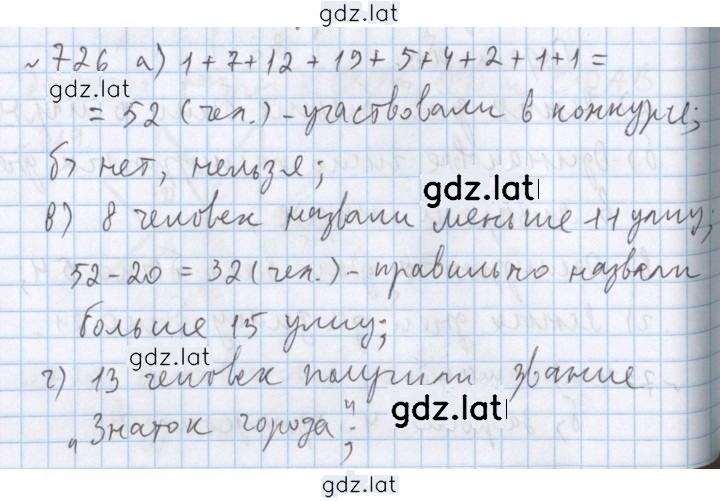 gdz.lat
№726 а) 1+7+12+19+5+4+2+1+1=
gdz.lat
= 52 (чел.) - участвовали в конкурсе;
б) нет, нельзя;
gdz.lat
в) 8 человек назвали меньше 11 улиц;
52-20 = 32 (чел.) - правильно назвали
больше 15 улиц;
gdz.lat
г) 13 человек получили звание
gdz.lat
„Знаток города";
gdz.lat